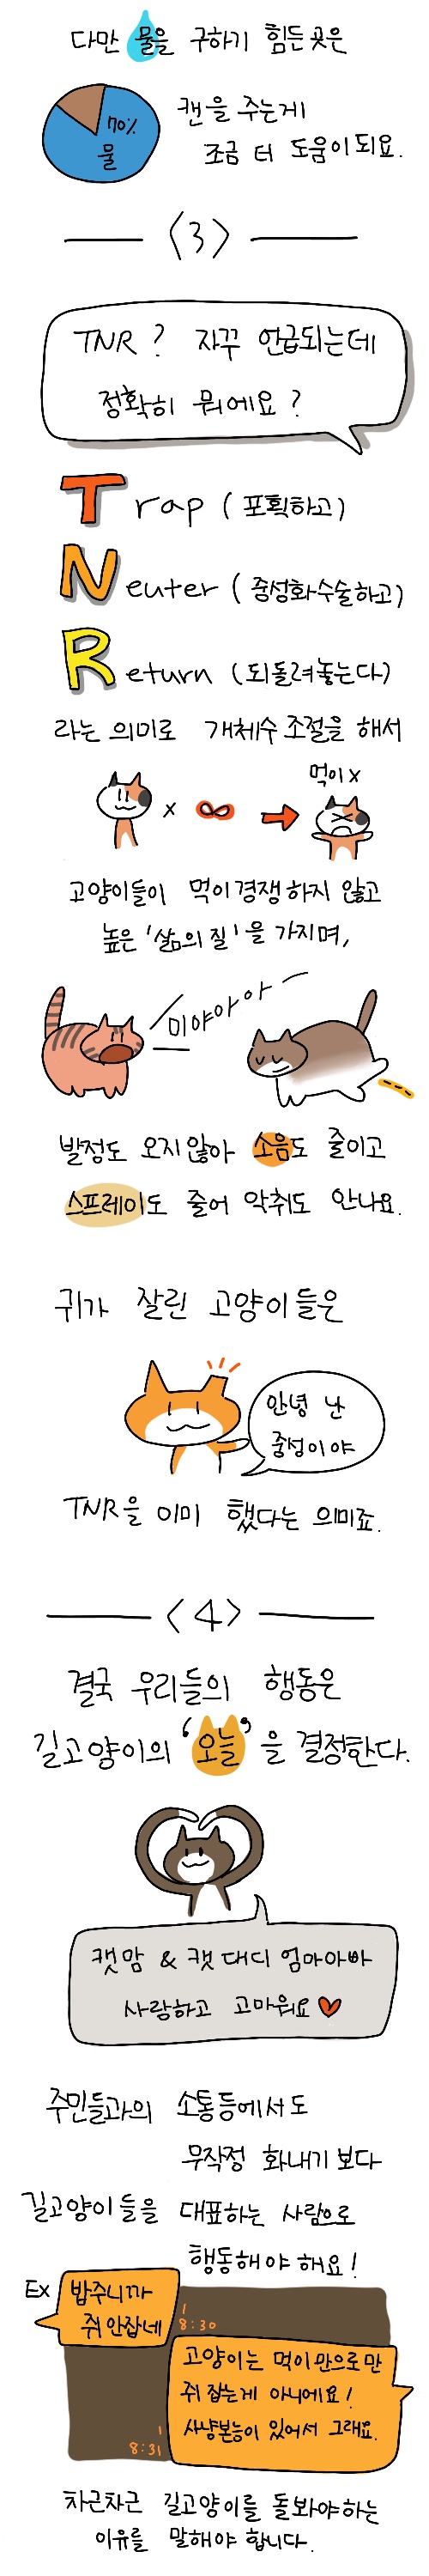 다만 물을 구하기 힘든 곳은
70%
물
캔을 주는게
조금 더 도움이 되요.
<3>
TNR? 자꾸 언급되는데
정확히 뭐에요?
Trap (포획하고)
Neuter (중성화수술하고)
Return (되돌려놓는다)
라는 의미로 개체수 조절을 해서
x ∞ → 먹이x
고양이들이 먹이경쟁하지 않고
높은 '삶의 질'을 가지며,
미야아아
발정도 오지않아 소음도 줄이고
스프레이도 줄어 악취도 안나요.
귀가 잘린 고양이들은
안녕 난
중성이야
TNR을 이미 했다는 의미죠.
<4>
결국 우리들의 행동은
길고양이의 '오늘'을 결정한다.
캣맘 & 캣대디 엄마아빠
사랑하고 고마워요
주민들과의 소통등에서도
무작정 화내기 보다
길고양이들을 대표하는 사람으로
행동해야 해요!
Ex
밥주니까
쥐 안잡네
1
8:30
고양이는 먹이만으로만
쥐 잡는게 아니에요!
사냥본능이 있어서 그래요.
1
8:31
차근차근 길고양이를 돌봐야하는
이유를 말해야 합니다.